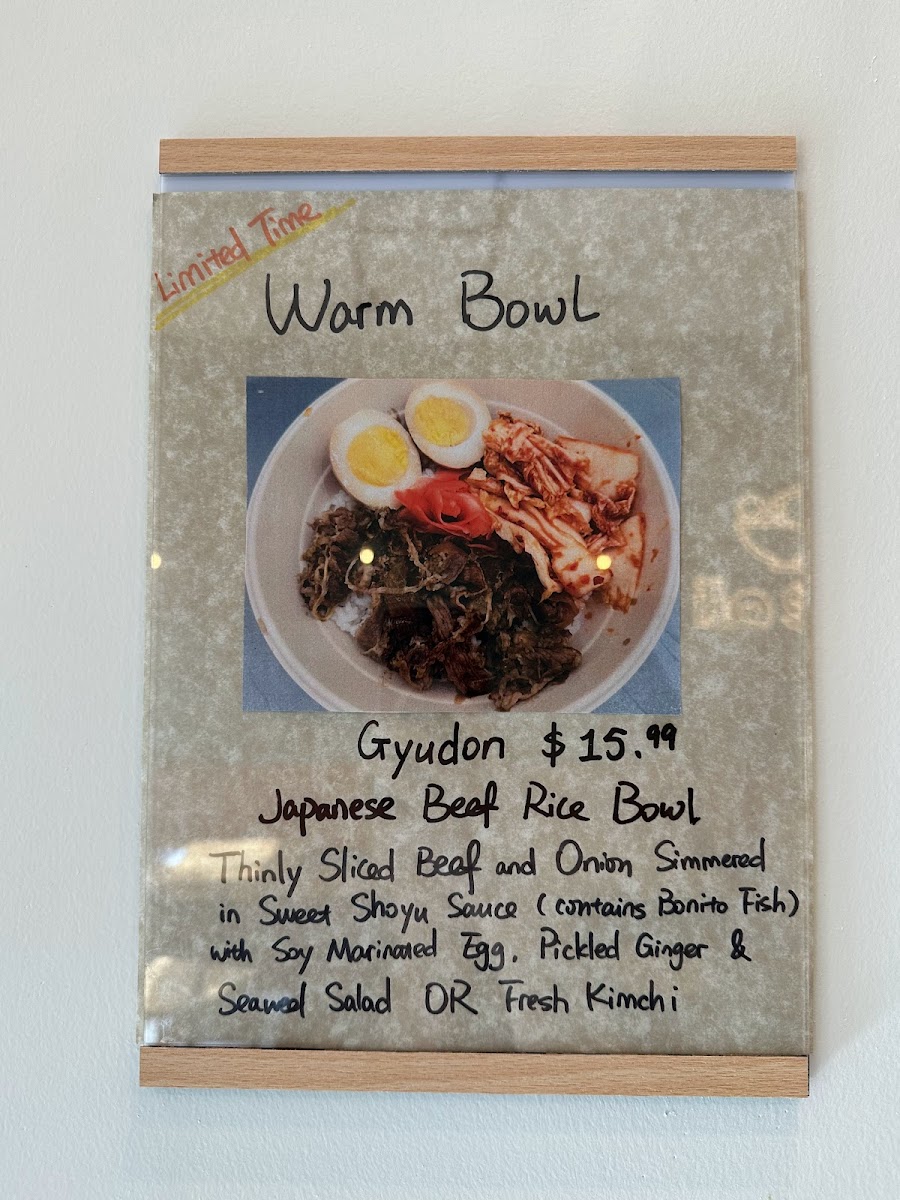 Limited Time
Warm Bowl
Gyudon $15.99
Japanese Beef Rice Bowl
Thinly Sliced Beef and Onion Simmered
in Sweet Shoyu Sauce (contains Bonito Fish)
with Soy Marinated Egg, Pickled Ginger &
Seaweed Salad OR Fresh Kimchi